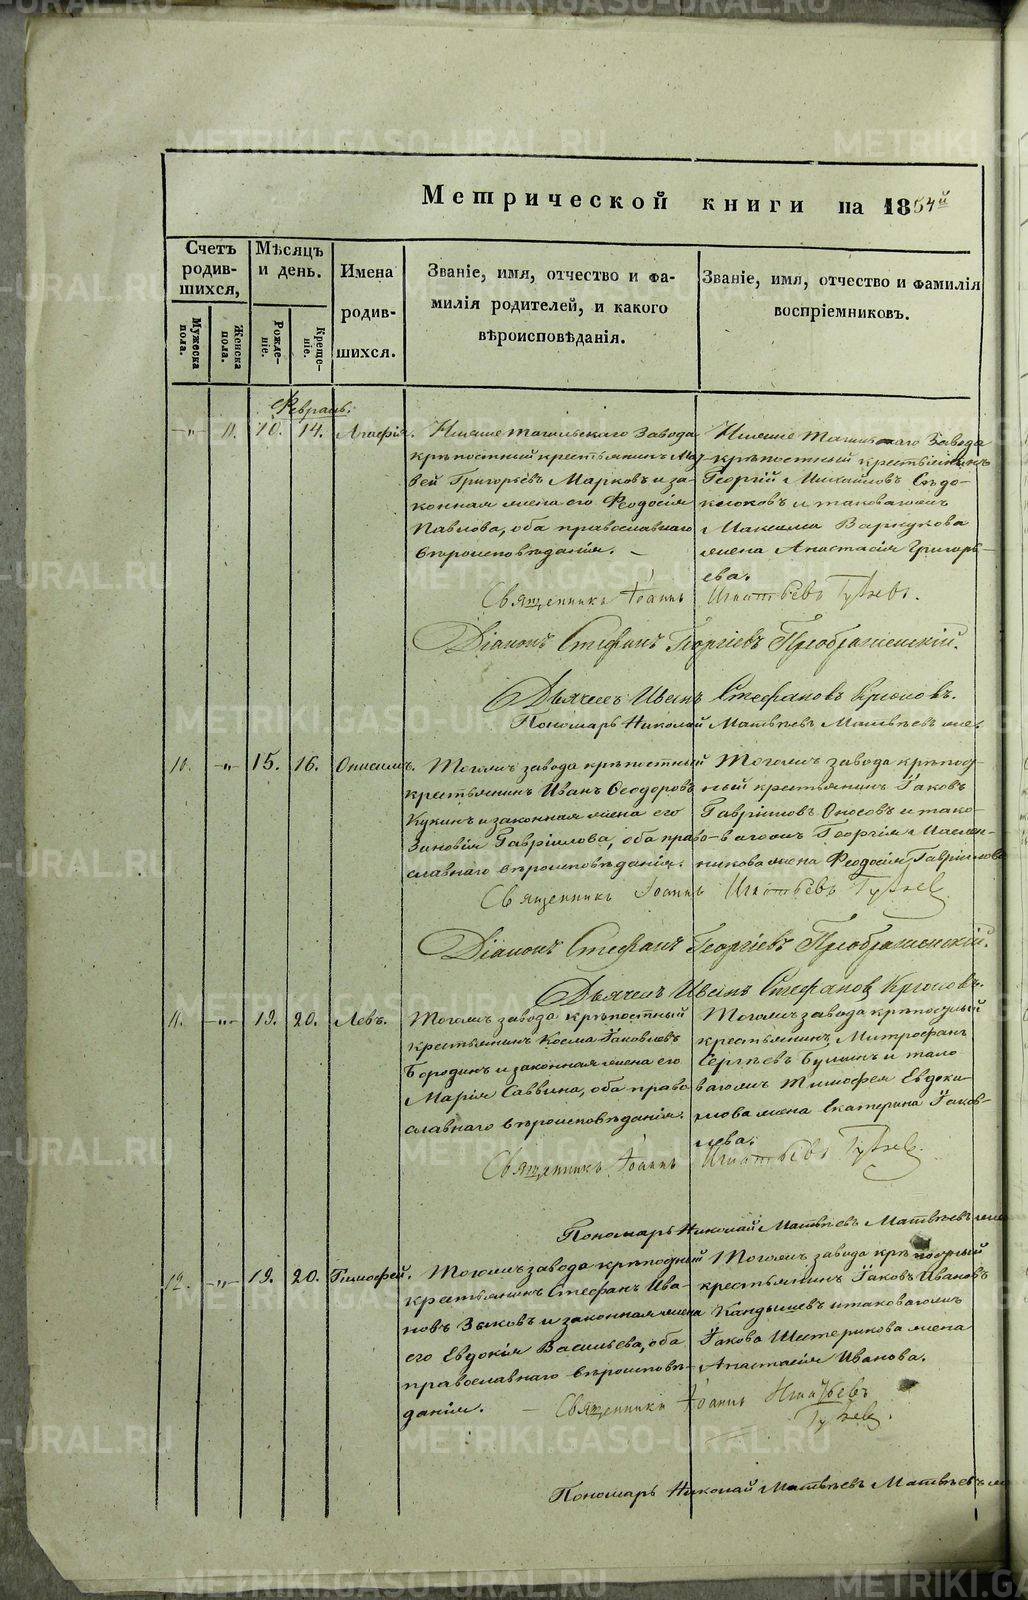 METRIKI.GASO-URAL.RU
Метрической книги на 1854й
Счетъ родившихся,
Мужеска пола.
Женска пола.
Мѣсяцъ и день.
Рожденіе.
Крещеніе.
Имена родившихся.
Званіе, имя, отчество и фамилія родителей, и какого вѣроисповѣданія.
Званіе, имя, отчество и фамилія воспріемниковъ.
Февраль.
—„— 11. 10. 14. Агафія.
Нижне Тагильскаго Завода
крѣпостный крестьянинъ Мат
вей Григорьевъ Марковъ и за-
конная жена его Феодосія
Павлова, оба православнаго
вѣроисповѣданія. —
Нижне Тагильскаго Завода
крѣпостный крестьянинъ
Георгій Михайловъ
и таковагожъ
Максима
жена Анастасія Григорь-
ева.
Священникъ Іоаннъ Игнатьевъ
Діаконъ Стефанъ Георгіевъ Преображенскій.
Дьячекъ Иванъ Стефановъ Крюковъ.
Пономарь Николай Матвѣевъ Матвѣевъ
10. —„— 15. 16. Онисимъ.
Тогожъ завода крѣпостный
крестьянинъ Иванъ Феодоровъ
Кукинъ и законная жена его
Зиновія Гавріилова, оба право-
славнаго вѣроисповѣданія.
Тогожъ завода крѣпост-
ный крестьянинъ Іаковъ
Гавріиловъ Оносовъ и тако-
вагожъ Георгія Маслен-
никова жена Феодосія Гавріилова
Священникъ Іоаннъ Игнатьевъ
Діаконъ Стефанъ Георгіевъ Преображенскій.
Дьячекъ Иванъ Стефановъ Крюковъ.
11. —„— 19. 20. Левъ.
Тогожъ завода крѣпостный
крестьянинъ Косма Іаковлевъ
Бородинъ и законная жена его
Марія Саввина, оба право-
славнаго вѣроисповѣданія.
Тогожъ завода крѣпостный
крестьянинъ Митрофанъ
Сергѣевъ и тако
вагожъ Тимофея Евдоки-
мова жена Екатерина Іаков-
лева.
Священникъ Іоаннъ Игнатьевъ
Пономарь Николай Матвѣевъ Матвѣевъ
12. —„— 19. 20. Тимофей.
Тогожъ завода крѣпостный
крестьянинъ Стефанъ Ива-
новъ Зыковъ и законная жена
его Евдокія Васильева, оба
православнаго вѣроисповѣ-
данія. —
Тогожъ завода крѣпостный
крестьянинъ Іаковъ Ивановъ
Кандышевъ и таковагожъ
Іакова Шитерикова жена
Анастасія Иванова.
Священникъ Іоаннъ Игнатьевъ
Пономарь Николай Матвѣевъ Матвѣевъ